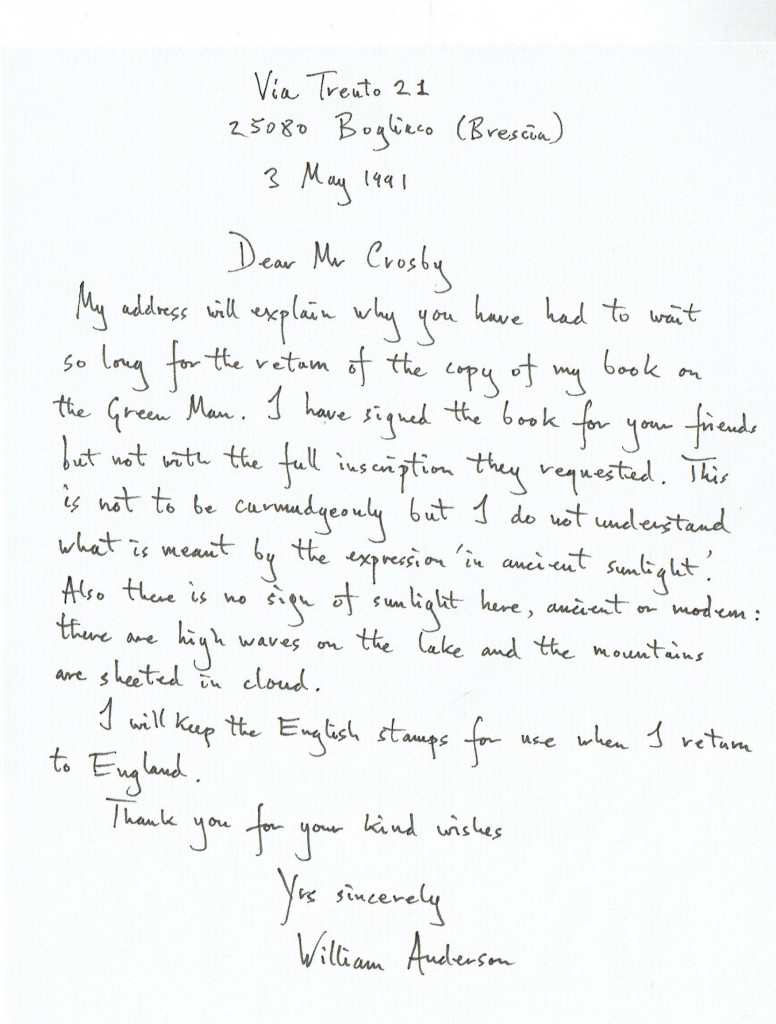 Via Trento 21
25080 Bogliaco (Brescia)
3 May 1991
Dear Mr Crosby
My address will explain why you have had to wait
so long for the return of the copy of my book on
the Green Man. I have signed the book for your friends
but not with the full inscription they requested. This
is not to be curmudgeonly but I do not understand
what is meant by the expression 'in ancient sunlight'.
Also there is no sign of sunlight here, ancient or modern:
there are high waves on the lake and the mountains
are sheeted in cloud.
I will keep the English stamps for use when I return
to England.
Thank you for your kind wishes
Yrs sincerely
William Anderson